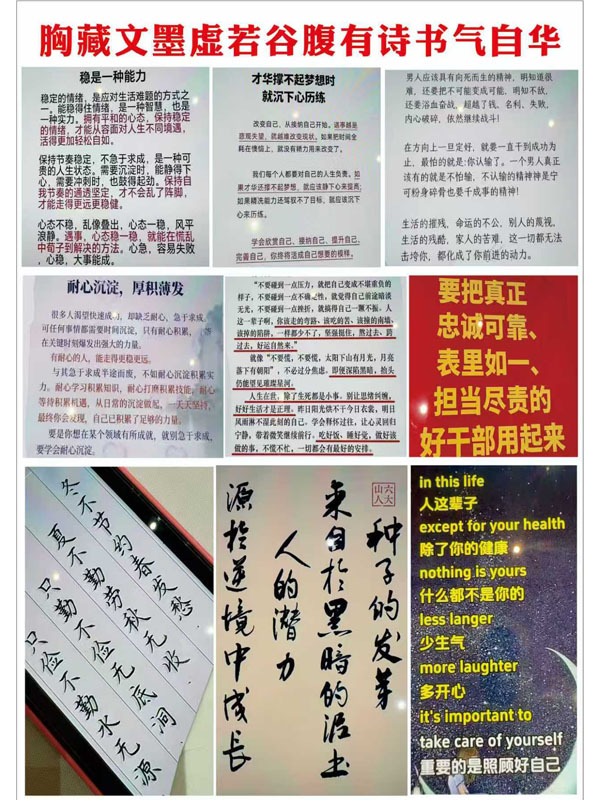 胸藏文墨虚若谷腹有诗书气自华
稳是一种能力
稳定的情绪，是应对生活难题的方式之
一。能稳得住情绪，是一种智慧，也是
一种实力。拥有平和的心态，保持稳定
的情绪，才能从容面对人生不同境遇，
活得更加轻松自如。
保持节奏稳定，不急于求成，是一种可
贵的人生状态。需要沉淀时，能静得下
心，需要冲刺时，也鼓得起劲。保持自
我节奏的通透坚定，才不会乱了阵脚，
才能走得更远更稳健。
心态不稳，乱像叠出，心态一稳，风平
浪静。遇事，心态稳一稳，就能在慌乱
中荀子到解决的方法。心急，容易失败
，心稳，大事能成。
才华撑不起梦想时
就沉下心历练
改变自己，从接纳自己开始。遇事越是
悲观失望，就越难改变现状。如果把时间全
耗在懊恼上，就没有精力用来改变了。
我们每个人都要对自己的人生负责。如
果才华还撑不起梦想，就应该静下心来提高；
如果精洗能力还驾驭不了目标，就应该沉下
心来历练。
学会欣赏自己、接纳自己、提升自己、
完善自己，你终将活成自己想要的模样。
男人应该具有向死而生的精神，明知道很
难，还要把不可能变成可能，明知不敌，
还要浴血奋战，超越了钱，名利、失败，
内心破碎，依然继续战斗！
在方向上一旦定好，就要一直干到成功为
止，最怕的就是:你认输了。一个男人真正
该有的就是不怕输，不认输的精神神是宁
可粉身碎骨也要干成事的精神！
生活的摧残，命运的不公，别人的蔑视，
生活的残酷，家人的苦难，这一切都无法
击垮你，都化成了你前进的动力。
耐心沉淀，厚积薄发
很多人渴望快速成功，却缺乏耐心、急于求成，
可任何事情都需要时间沉淀，只有耐心积累，
在关键时刻爆发出强大的力量。
有耐心的人，能走得更稳更远。
与其急于求成半途而废，不如耐心沉淀积累
实力。耐心学习积累知识，耐心打磨积累技能，耐心
等待积累机遇，从日常的沉淀做起，一天天坚持，
最终你会发现，自己已积累了足够的力量。
要是你想在某个领域有所成就，就别急于求成，
要学会耐心沉淀。
“不要碰到一点压力，就把自己变成不堪重负的
样子，不要碰到一点不确定性，就觉得自己前途暗淡
无光，不要碰到一点挫折，就搞得自己一蹶不振。人
这一辈子啊，你该走的弯路、该吃的苦、该撞的南墙、
该掉的陷阱，一样都少不了，坚强挺住，熬过去、跨
过去，好运自然来。”
就像“不要慌，不要慌，太阳下山有月光，月亮
落下有朝阳”，不必过分焦虑，即便深陷黑暗，抬头
仍能望见璀璨星河。
人生在世，除了生死都是小事。别让思绪纠缠，
好好生活才是正理。昨日阳光烘不干今日衣裳，明日
风雨淋不湿此刻的自己。学会释怀过往，让心灵回归
宁静，带着微笑继续前行。吃好饭、睡好觉，做好该
做的事，不慌不忙，一切都会有最好的安排。
要把真正
忠诚可靠、
表里如一、
担当尽责的
好干部用起来
冬不节约春发愁
夏不勤劳秋无收
只勤不俭无底洞
只俭不勤水无源
六大山人
种子的发芽
来自於黑暗的泥土
人的潜力
源於逆境中成长
in this life
人这辈子
except for your health
除了你的健康
nothing is yours
什么都不是你的
less langer
少生气
more laughter
多开心
it's important to
take care of yourself
重要的是照顾好自己